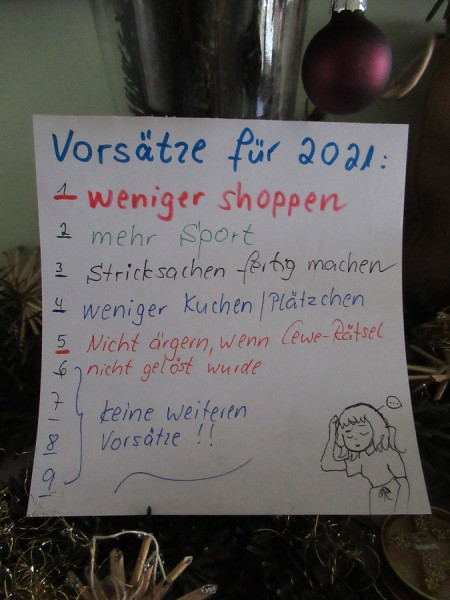 Vorsätze für 2021:
1 weniger shoppen
2 mehr Sport
3 Stricksachen fertig machen
4 weniger Kuchen/Plätzchen
5 Nicht ärgern, wenn Lewe-Rätsel
6 nicht gelöst wurde
7
keine weiteren
8 Vorsätze!!
9
...